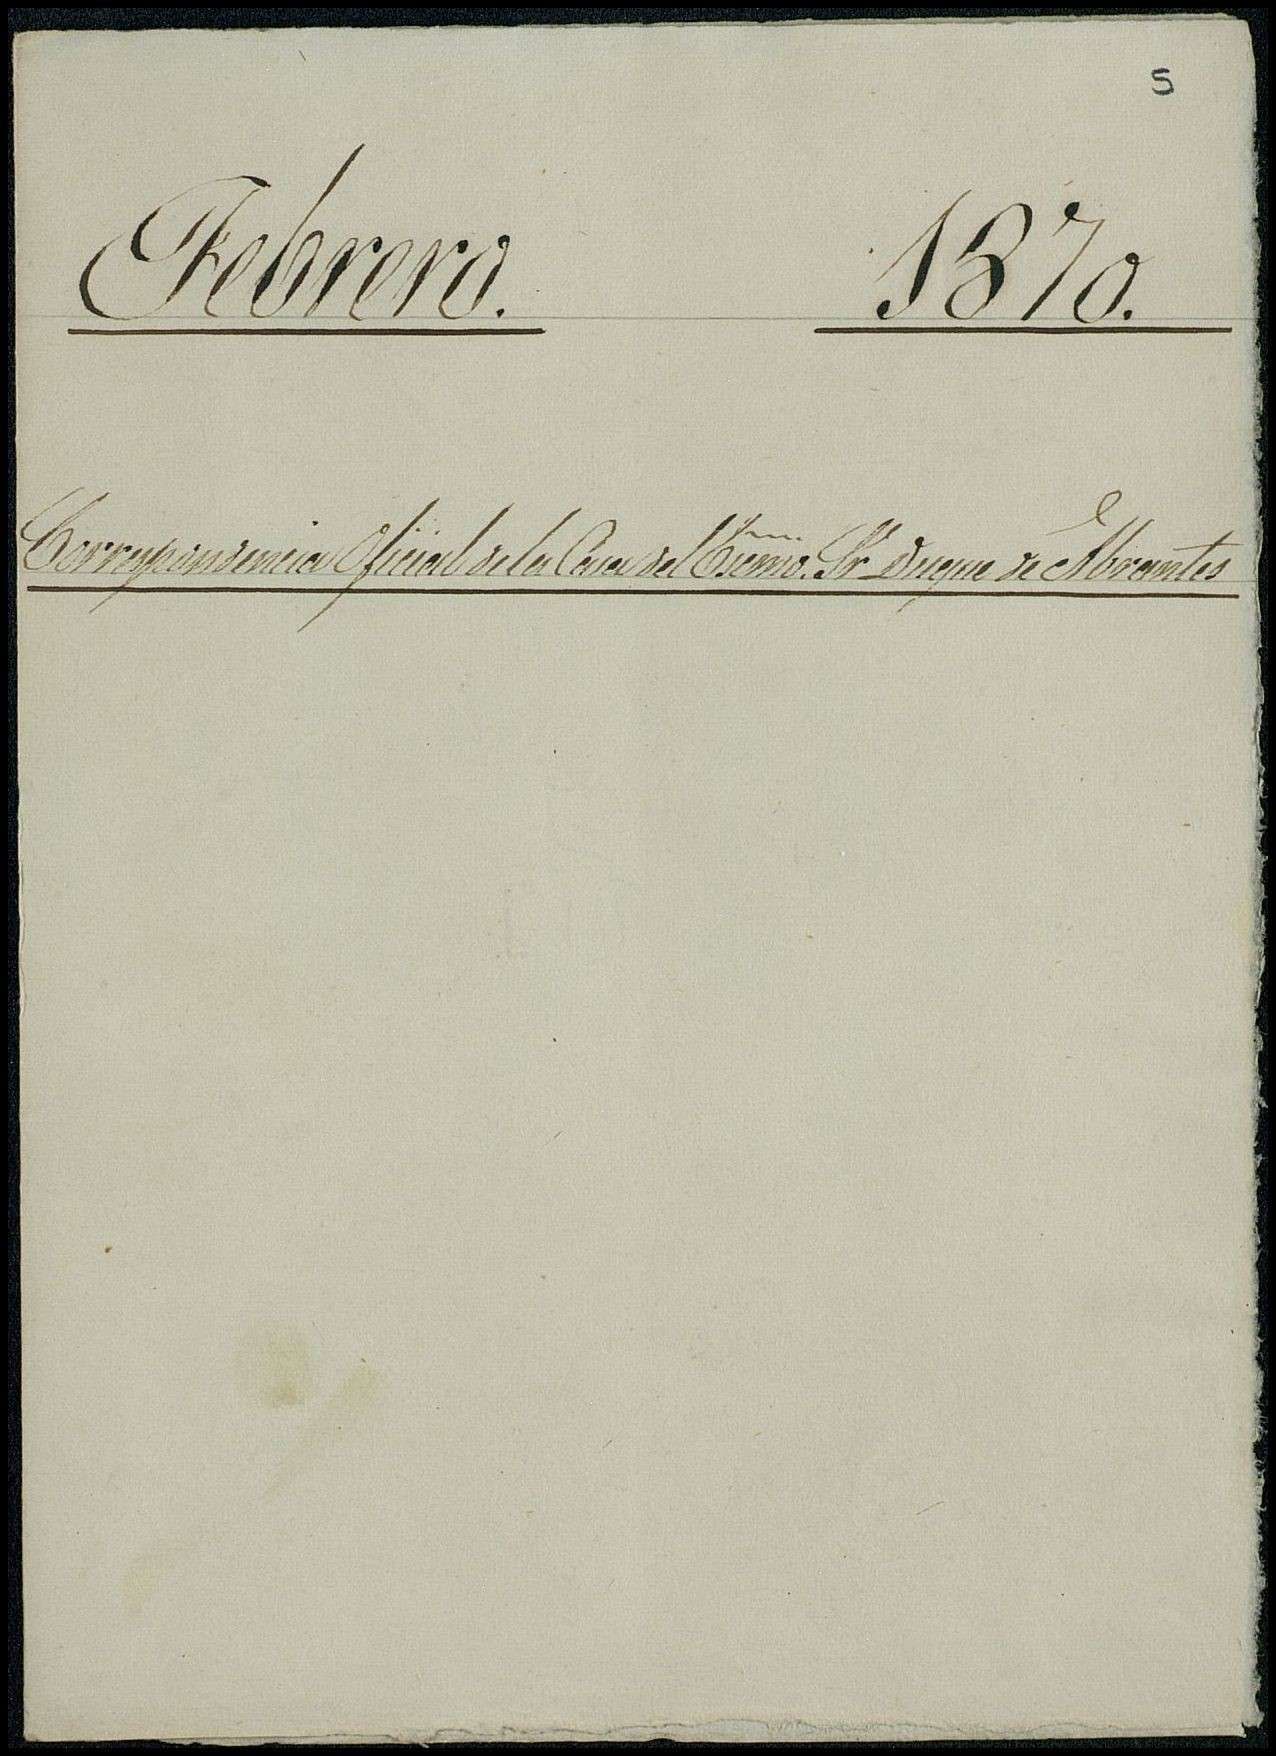 5
Febrero. 1870.
Correspondencia Oficial de la Casa del Excmo. Sr Duque de Abrantes